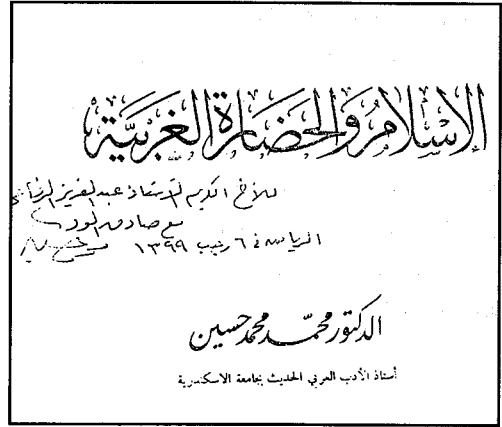 الإسلام والحضارة الغربية
للأخ الكريم الأستاذ عبد العزيز الرفاعي
مع صادق الود
الرياض في ٦ رجب ١٣٩٩
الدكتور محمد محمد حسين
أستاذ الأدب العربي الحديث بجامعة الاسكندرية